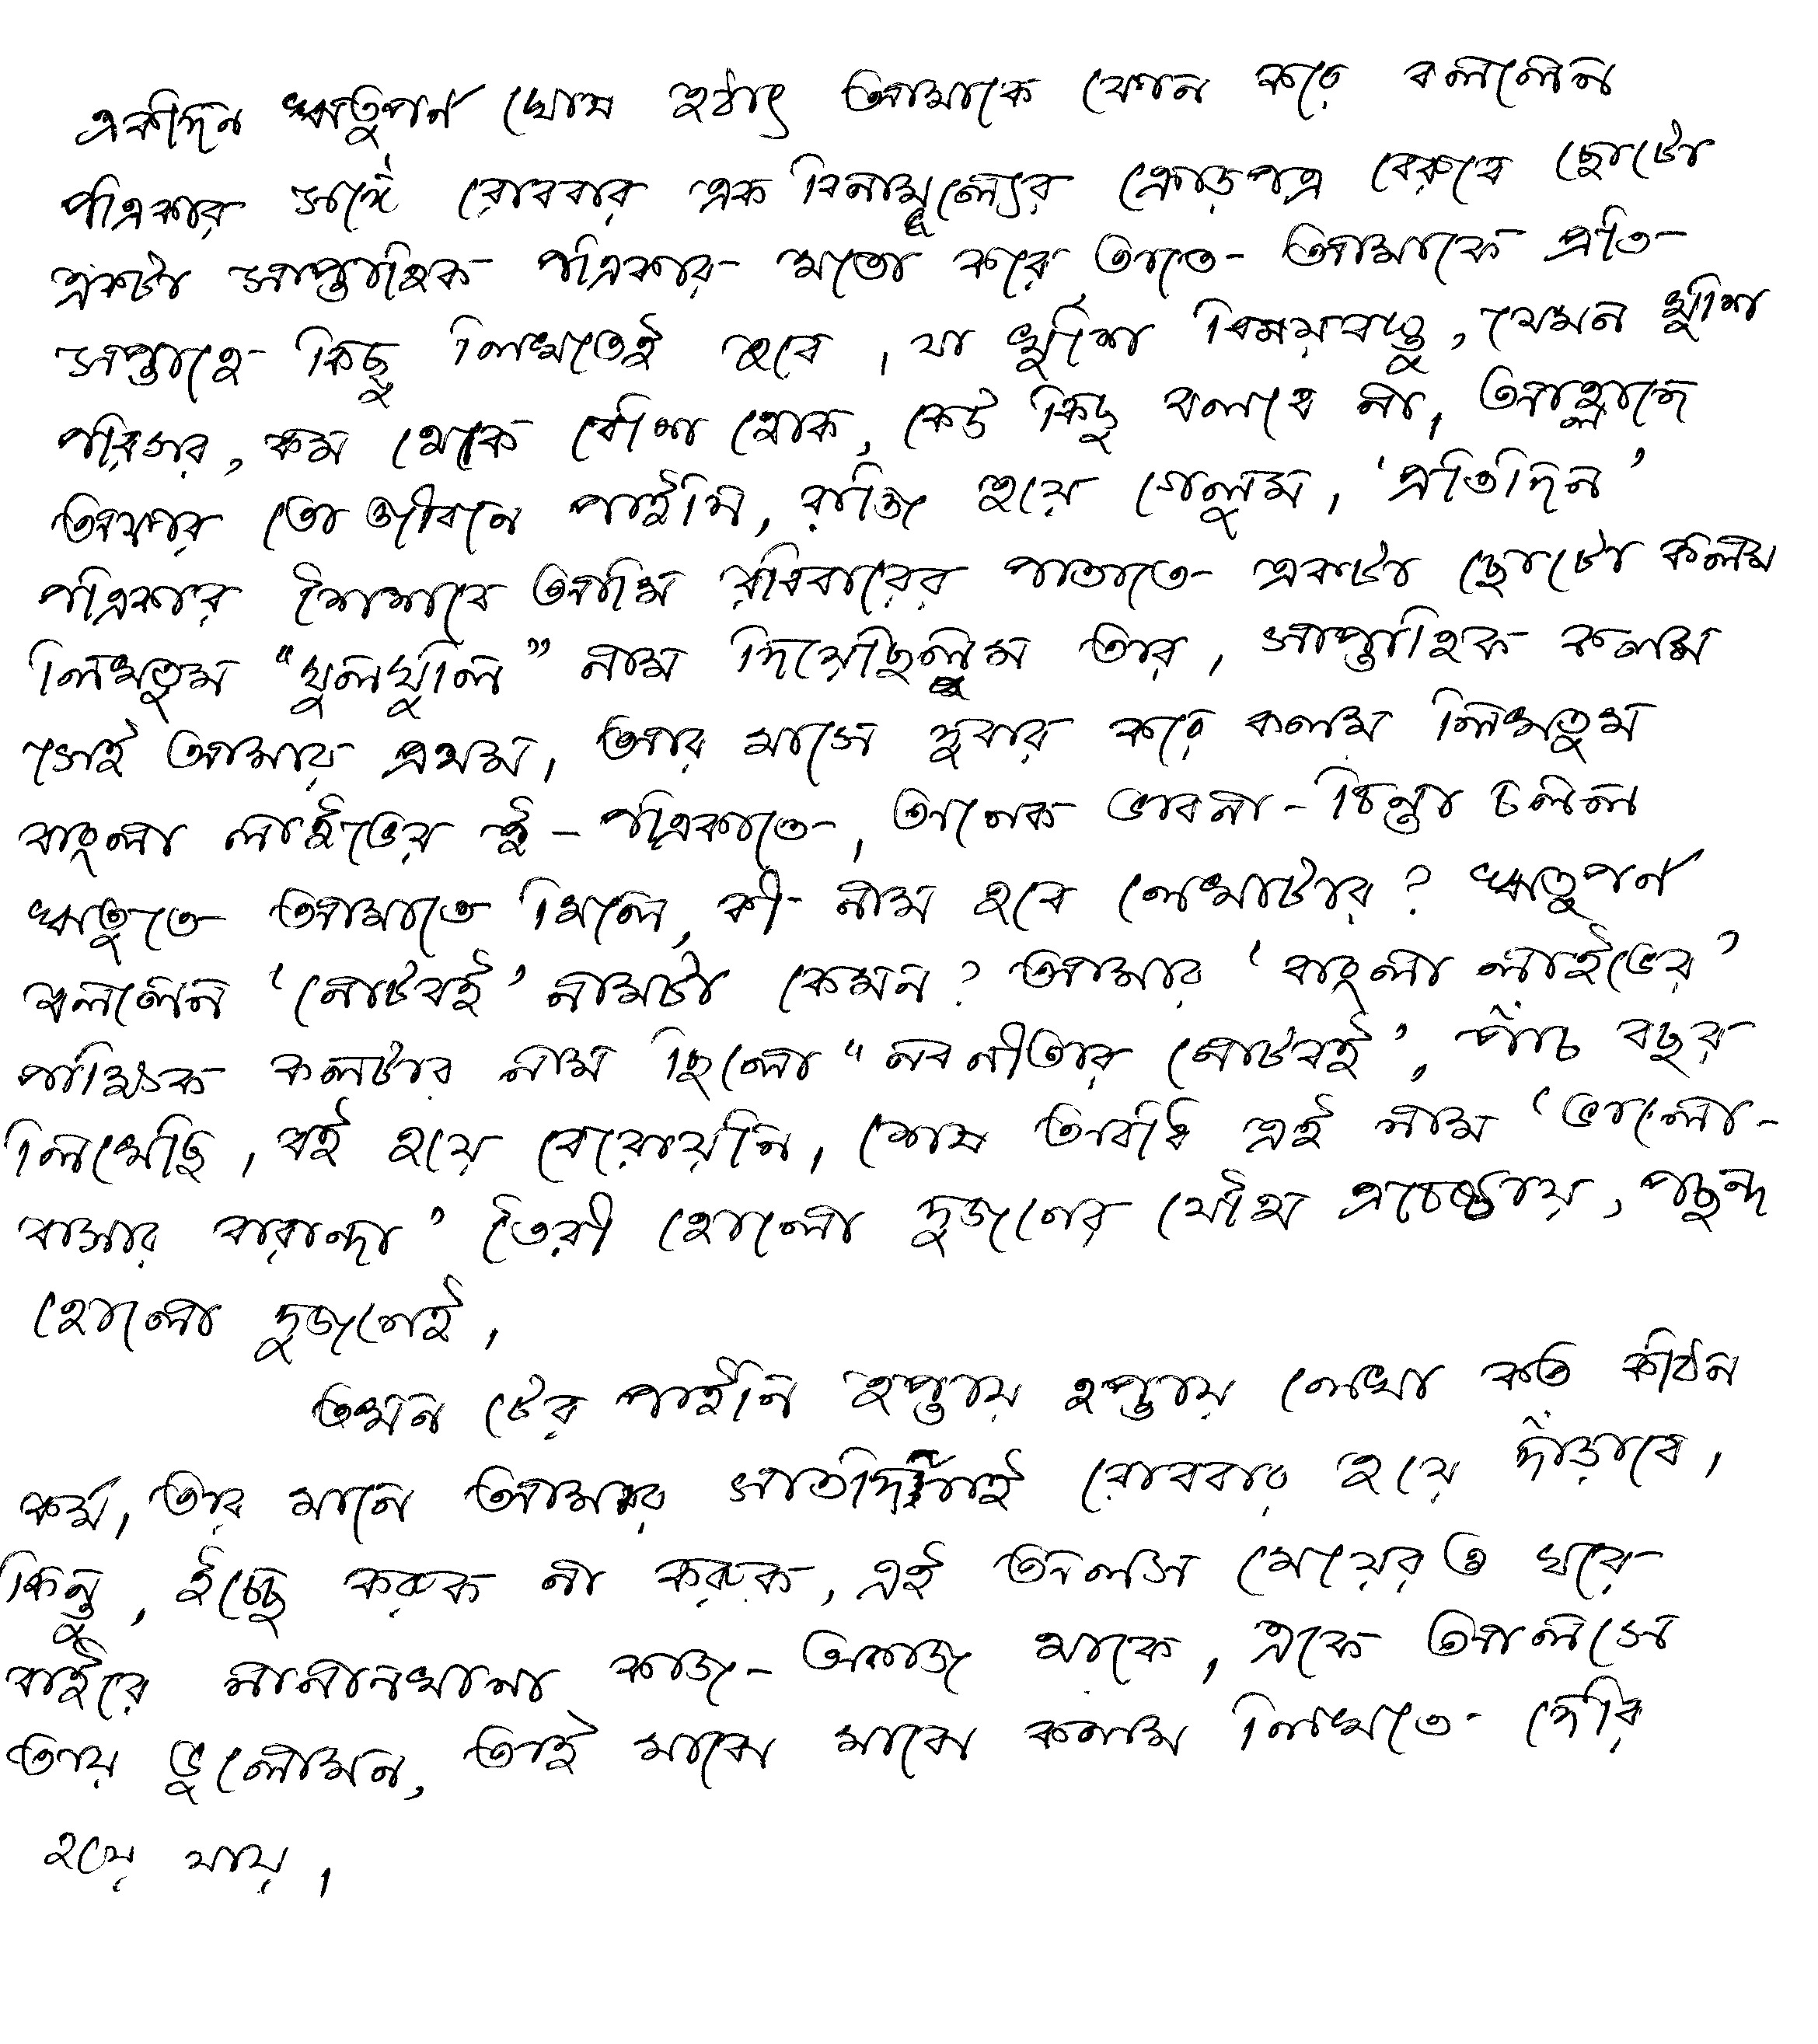 একদিন ঋতুপর্ণ ঘোষ হঠাৎ আমাকে ফোন করে বললেন
পত্রিকার সঙ্গে রোববার এক বিনামূল্যের ক্রোড়পত্র বেরুবে ছোটো
একটা সাপ্তাহিক পত্রিকার মতো করে, তাতে আমাকে প্রতি
সপ্তাহে কিছু লিখতেই হবে, যা খুশি বিষয়বস্তু, যেমন খুশি
পরিসর, কম থেকে বেশি হোক, কেউ কিছু বলবে না, আহ্লাদে
অফার তো জীবনে পাইনি, রাজি হয়ে গেলুম, 'প্রতিদিন'
পত্রিকার আমি রবিবারের পাতাতে একটা ছোটো কলম
লিখতুম "ঘুলঘুলি" নাম দিয়েছিলুম তার, সাপ্তাহিক কলম
সেই আমার প্রথম, আর মাসে দুবার করে কলাম লিখতুম
বাংলা লাইভের ই-পত্রিকাতে, অনেক ভাবনা-চিন্তা চলল
ঋতুতে আমাতে মিলে, কী নাম হবে লেখাটার? ঋতুপর্ণ
বললেন 'নোটবই' নামটা কেমন? আমার 'বাংলা লাইভের'
পাক্ষিক কলটার নাম ছিলো "নবনীতার নোটবই', পাঁচ বছর
লিখেছি, বই হয়ে বেরোয়নি, শেষ অবধি এই নাম 'ভালো-
বাসার বারান্দা' তৈরী হোলো দুজনের যৌথ প্রচেষ্টায়, পছন্দ
হোলো দুজনেই,
তখন টের পাইনি হপ্তায় হপ্তায় লেখা কত কঠিন
কর্ম, তার মানে আমার সাতদিনই রোববার হয়ে দাঁড়াবে,
কিন্তু, ইচ্ছে করুক না করুক, এই অলস মেয়েরও ঘরে
বাইরে নানানখানা কাজ-অকাজ থাকে, একে আলসে
তায় ভুলোমন, তাই মাঝে মাঝে কলাম লিখতে দেরি
হয়ে যায়,